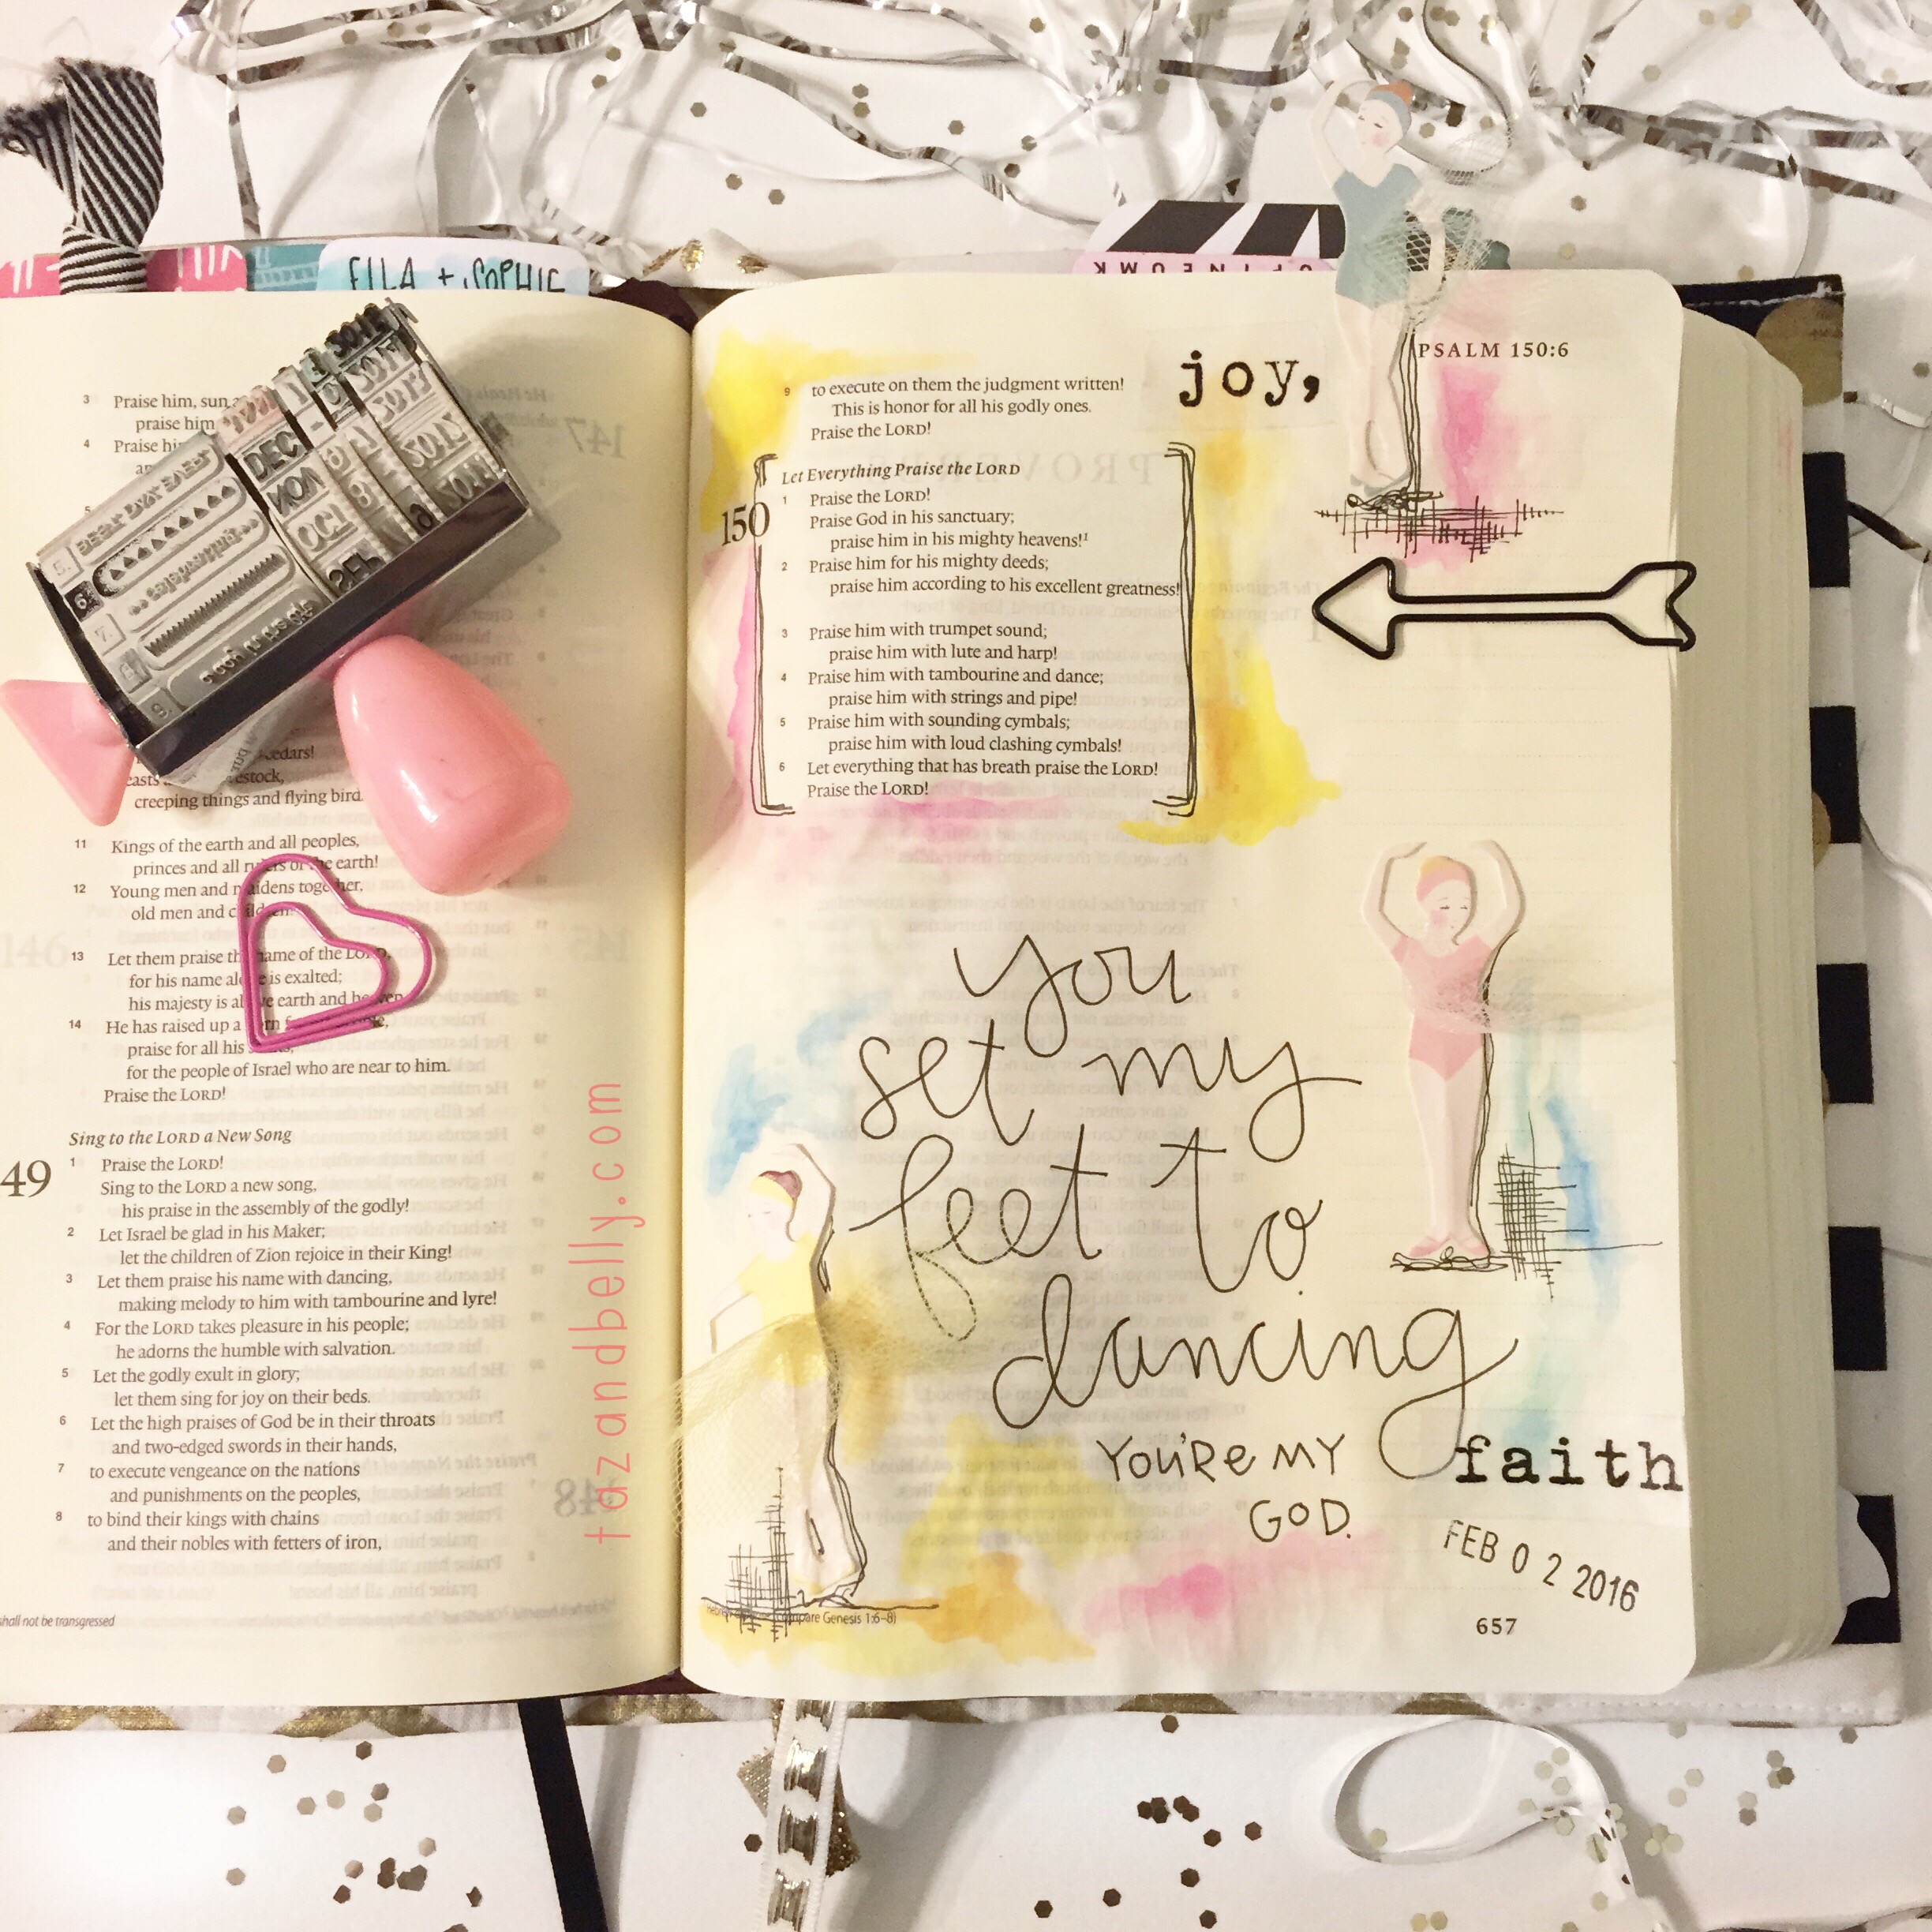 ELLA + SOPHIE
3 Praise him, sun
praise him
4 Praise
creeping things and flying bird
11 Kings of the earth and all peoples,
princes and all rulers of the earth!
12 Young men and maidens together,
old men and children!
13 Let them praise the name of the LORD,
for his name alone is exalted;
his majesty is above earth and heaven
14 He has raised up a
praise for all his
for the people of Israel who are near to him.
Praise the LORD!
Sing to the LORD a New Song
49
1 Praise the LORD!
Sing to the LORD a new song,
his praise in the assembly of the godly!
2 Let Israel be glad in his Maker;
let the children of Zion rejoice in their King!
3 Let them praise his name with dancing,
making melody to him with tambourine and lyre!
4 For the LORD takes pleasure in his people;
he adorns the humble with salvation.
5 Let the godly exult in glory;
let them sing for joy on their beds.
6 Let the high praises of God be in their throats
and two-edged swords in their hands,
7 to execute vengeance on the nations
and punishments on the peoples,
8 to bind their kings with chains
and their nobles with fetters of iron,
shall not be transgressed
tazandbelly.com
PSALM 150:6
joy,
9 to execute on them the judgment written!
This is honor for all his godly ones.
Praise the LORD!
Let Everything Praise the LORD
150
1 Praise the LORD!
Praise God in his sanctuary;
praise him in his mighty heavens!¹
2 Praise him for his mighty deeds;
praise him according to his excellent greatness!
3 Praise him with trumpet sound;
praise him with lute and harp!
4 Praise him with tambourine and dance;
praise him with strings and pipe!
5 Praise him with sounding cymbals;
praise him with loud clashing cymbals!
6 Let everything that has breath praise the LORD!
Praise the LORD!
you
set my
feet to
dancing
YOU'RE MY
GOD.
faith
FEB 0 2 2016
Genesis 1:6–8)
657